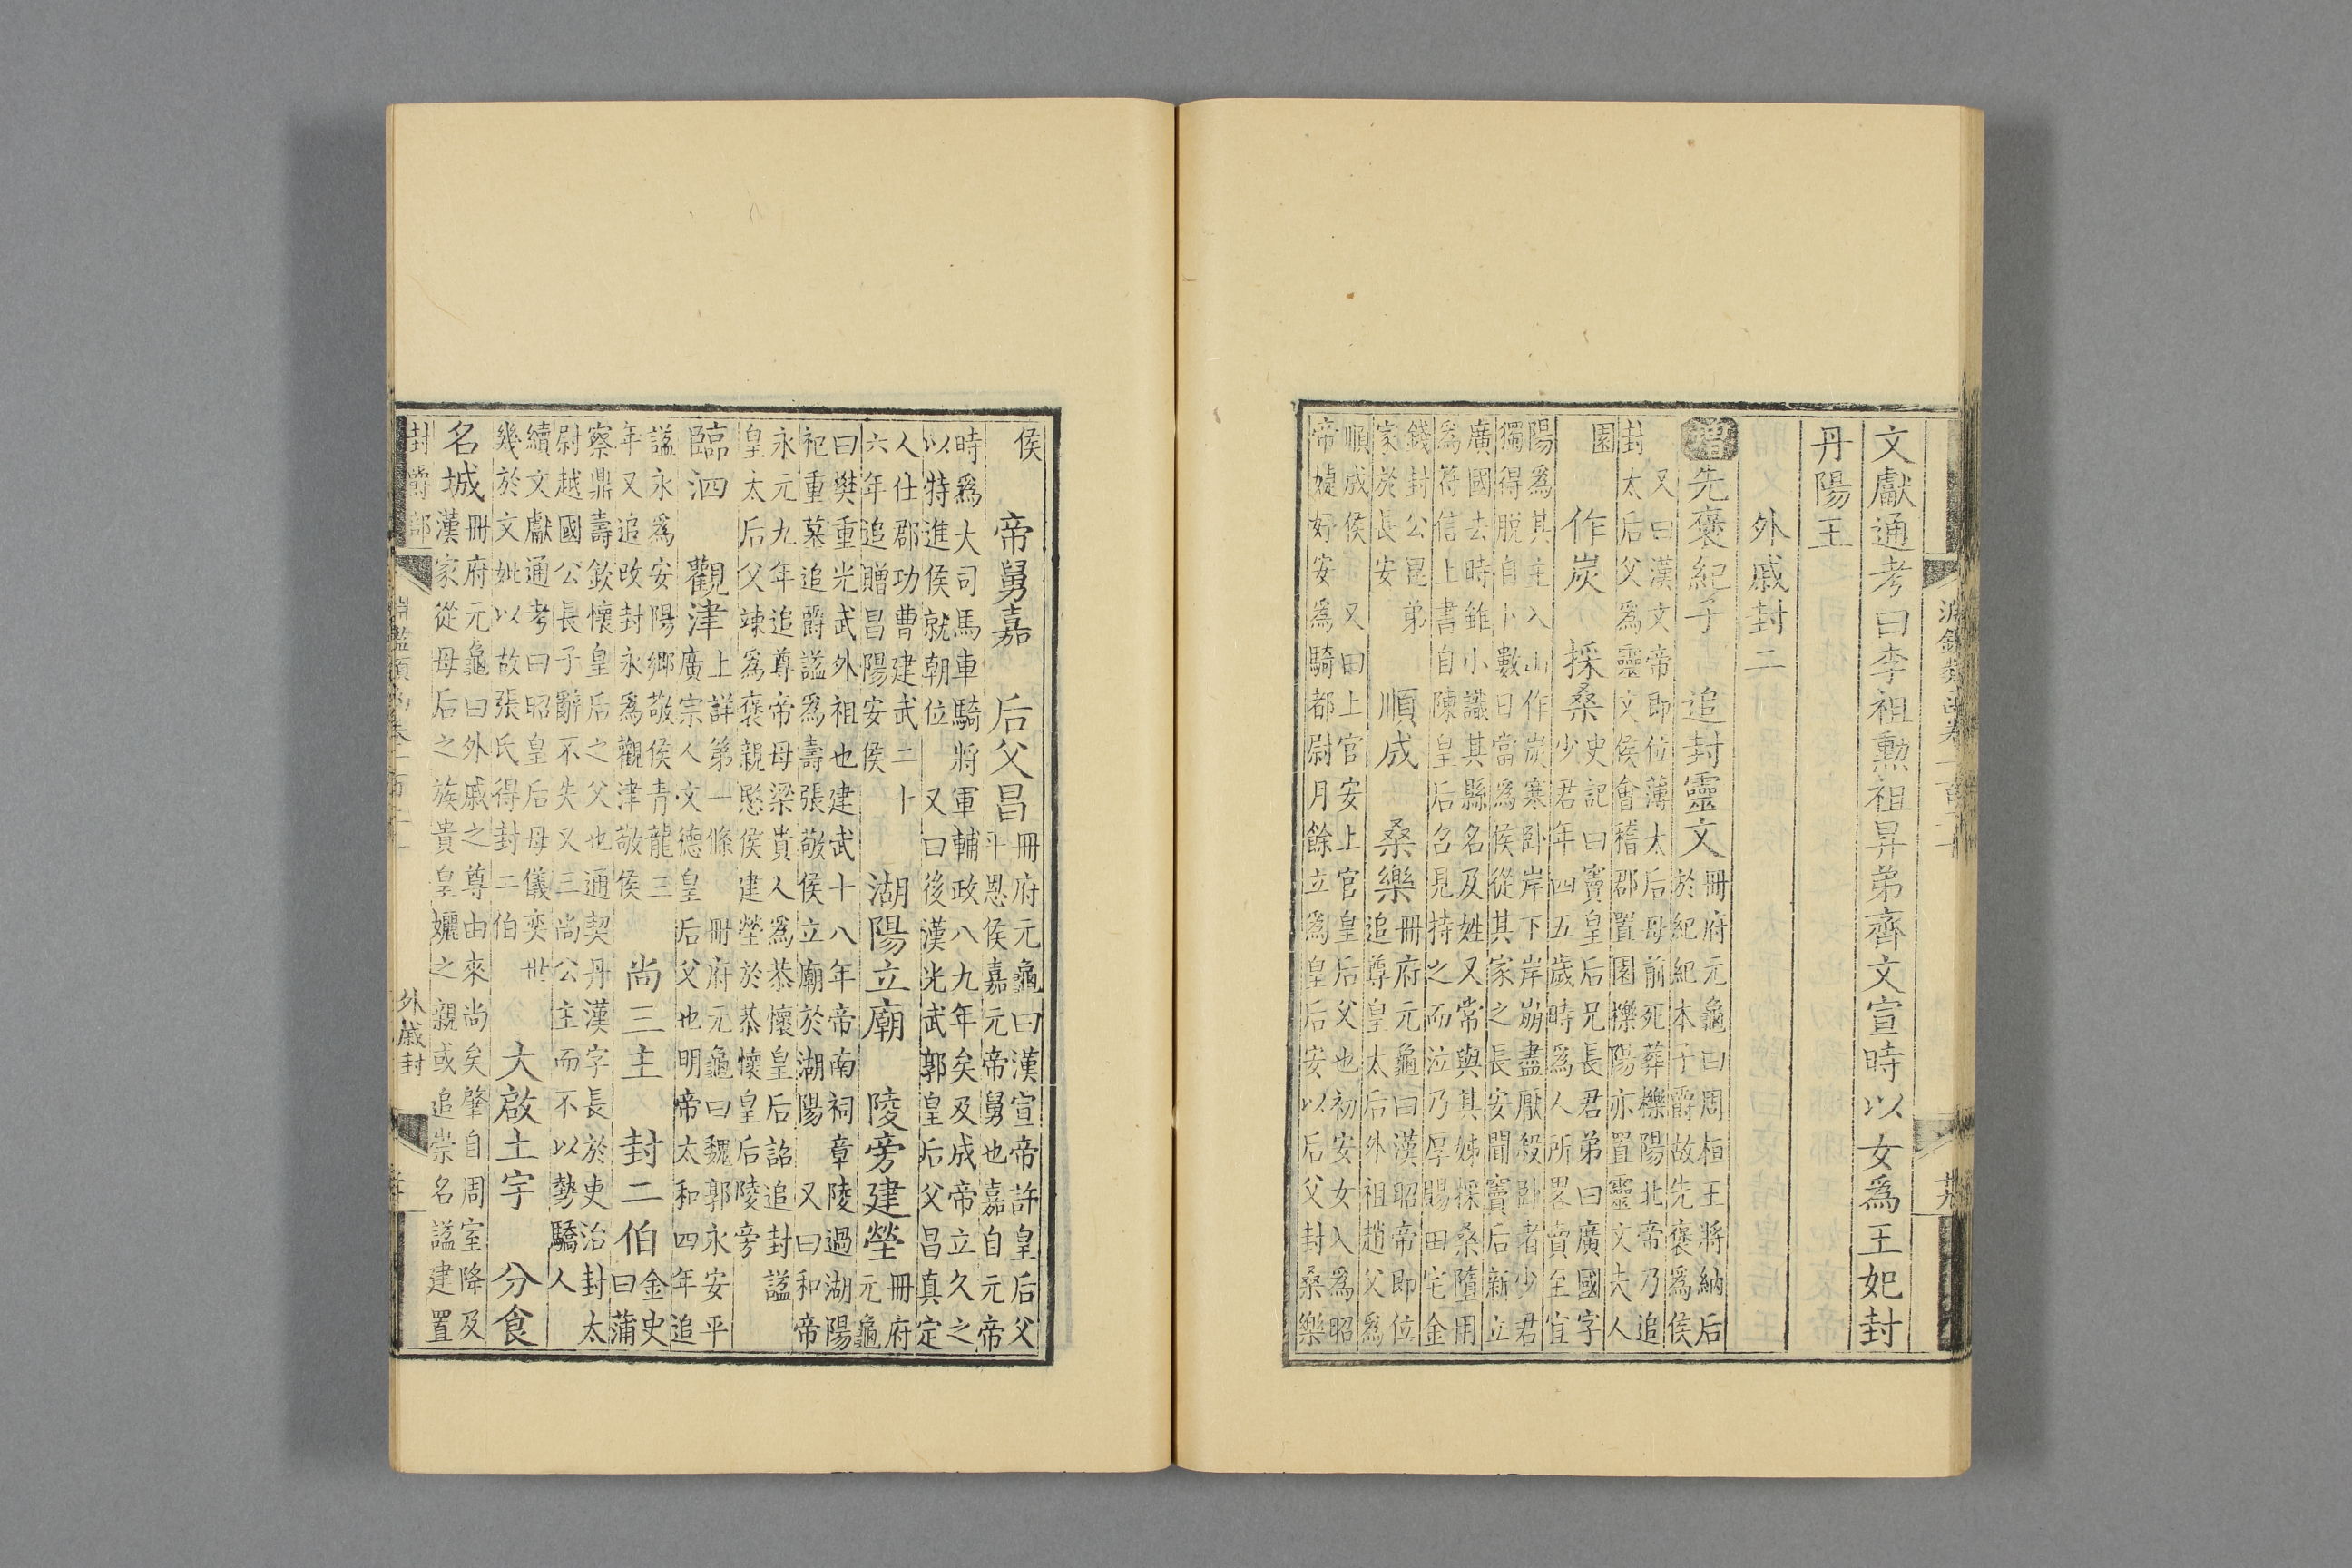 淵鑑類函卷
文獻通考曰李祖勲祖昇弟齊文宣時以女爲王妃封
丹陽王
外戚封二
增先褒紀子 追封靈文 冊府元龜曰周桓王將納后
於紀紀本子爵故先褒爲侯
又曰漢文帝即位薄太后母前死葬櫟陽北帝乃追
封太后父爲靈文侯會稽郡置園櫟陽亦置靈文夫人
園 作炭 採桑 史記曰竇皇后兄長君弟曰廣國字
少君年四五歲時爲人所畧賣至宜
陽爲其主入山作炭寒卧岸下岸崩盡厭殺卧者少君
獨得脫自卜數日當爲侯從其家之長安聞竇后新立
廣國去時雖小識其縣名及姓又常與其姊採桑墮用
爲符信上書自陳皇后召見持之而泣乃厚賜田宅金
錢封公昆弟
家於長安 順成 桑樂 冊府元龜曰漢昭帝即位
追尊皇太后外祖趙父爲
順成侯 又曰上官安上官皇后父也初安女入爲昭
帝婕妤安爲騎都尉月餘立爲皇后安以后父封桑樂
侯 帝舅嘉 后父昌 冊府元龜曰漢宣帝許皇后父
平恩侯嘉元帝舅也嘉自元帝
時爲大司馬車騎將軍輔政八九年矣及成帝立久之
以特進侯就朝位 又曰後漢光武郭皇后父昌真定
人仕郡功曹建武二十
六年追贈昌陽安侯 湖陽立廟 陵旁建塋 冊府
元龜
曰樊重光武外祖也建武十八年帝南祠章陵過湖陽
祀重墓追爵諡爲壽張敬侯立廟於湖陽 又曰和帝
永元九年追尊帝母梁貴人爲恭懷皇后詔追封諡
皇太后父竦爲褒親愍侯建塋於恭懷皇后陵旁
臨泗 觀津 上詳第一條 冊府元龜曰魏郭永安平
廣宗人文德皇后父也明帝太和四年追
諡永爲安陽鄉敬侯青龍三
年又追改封永爲觀津敬侯 尚三主 封二伯 金史
曰蒲
察鼎壽欽懷皇后之父也通契丹漢字長於吏治封太
尉越國公長子辭不失又三尚公主而不以勢驕人
續文獻通考曰昭皇后母儀奕世
幾於文妣以故張氏得封二伯 大啟土宇 分食
名城 冊府元龜曰外戚之尊由來尚矣肇自周室降及
漢家從母后之族貴皇孋之親或追崇名諡建置
封爵部 淵鑑類函卷 外戚封